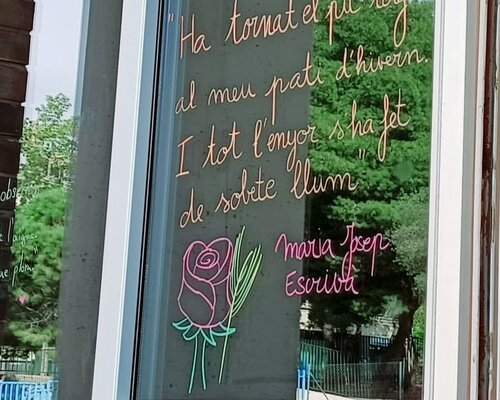 "Ha tornat el pit roig
al meu pati d'hivern.
I tot l'enyor s'ha fet
de sobte llum"
Maria Josep
Escrivà